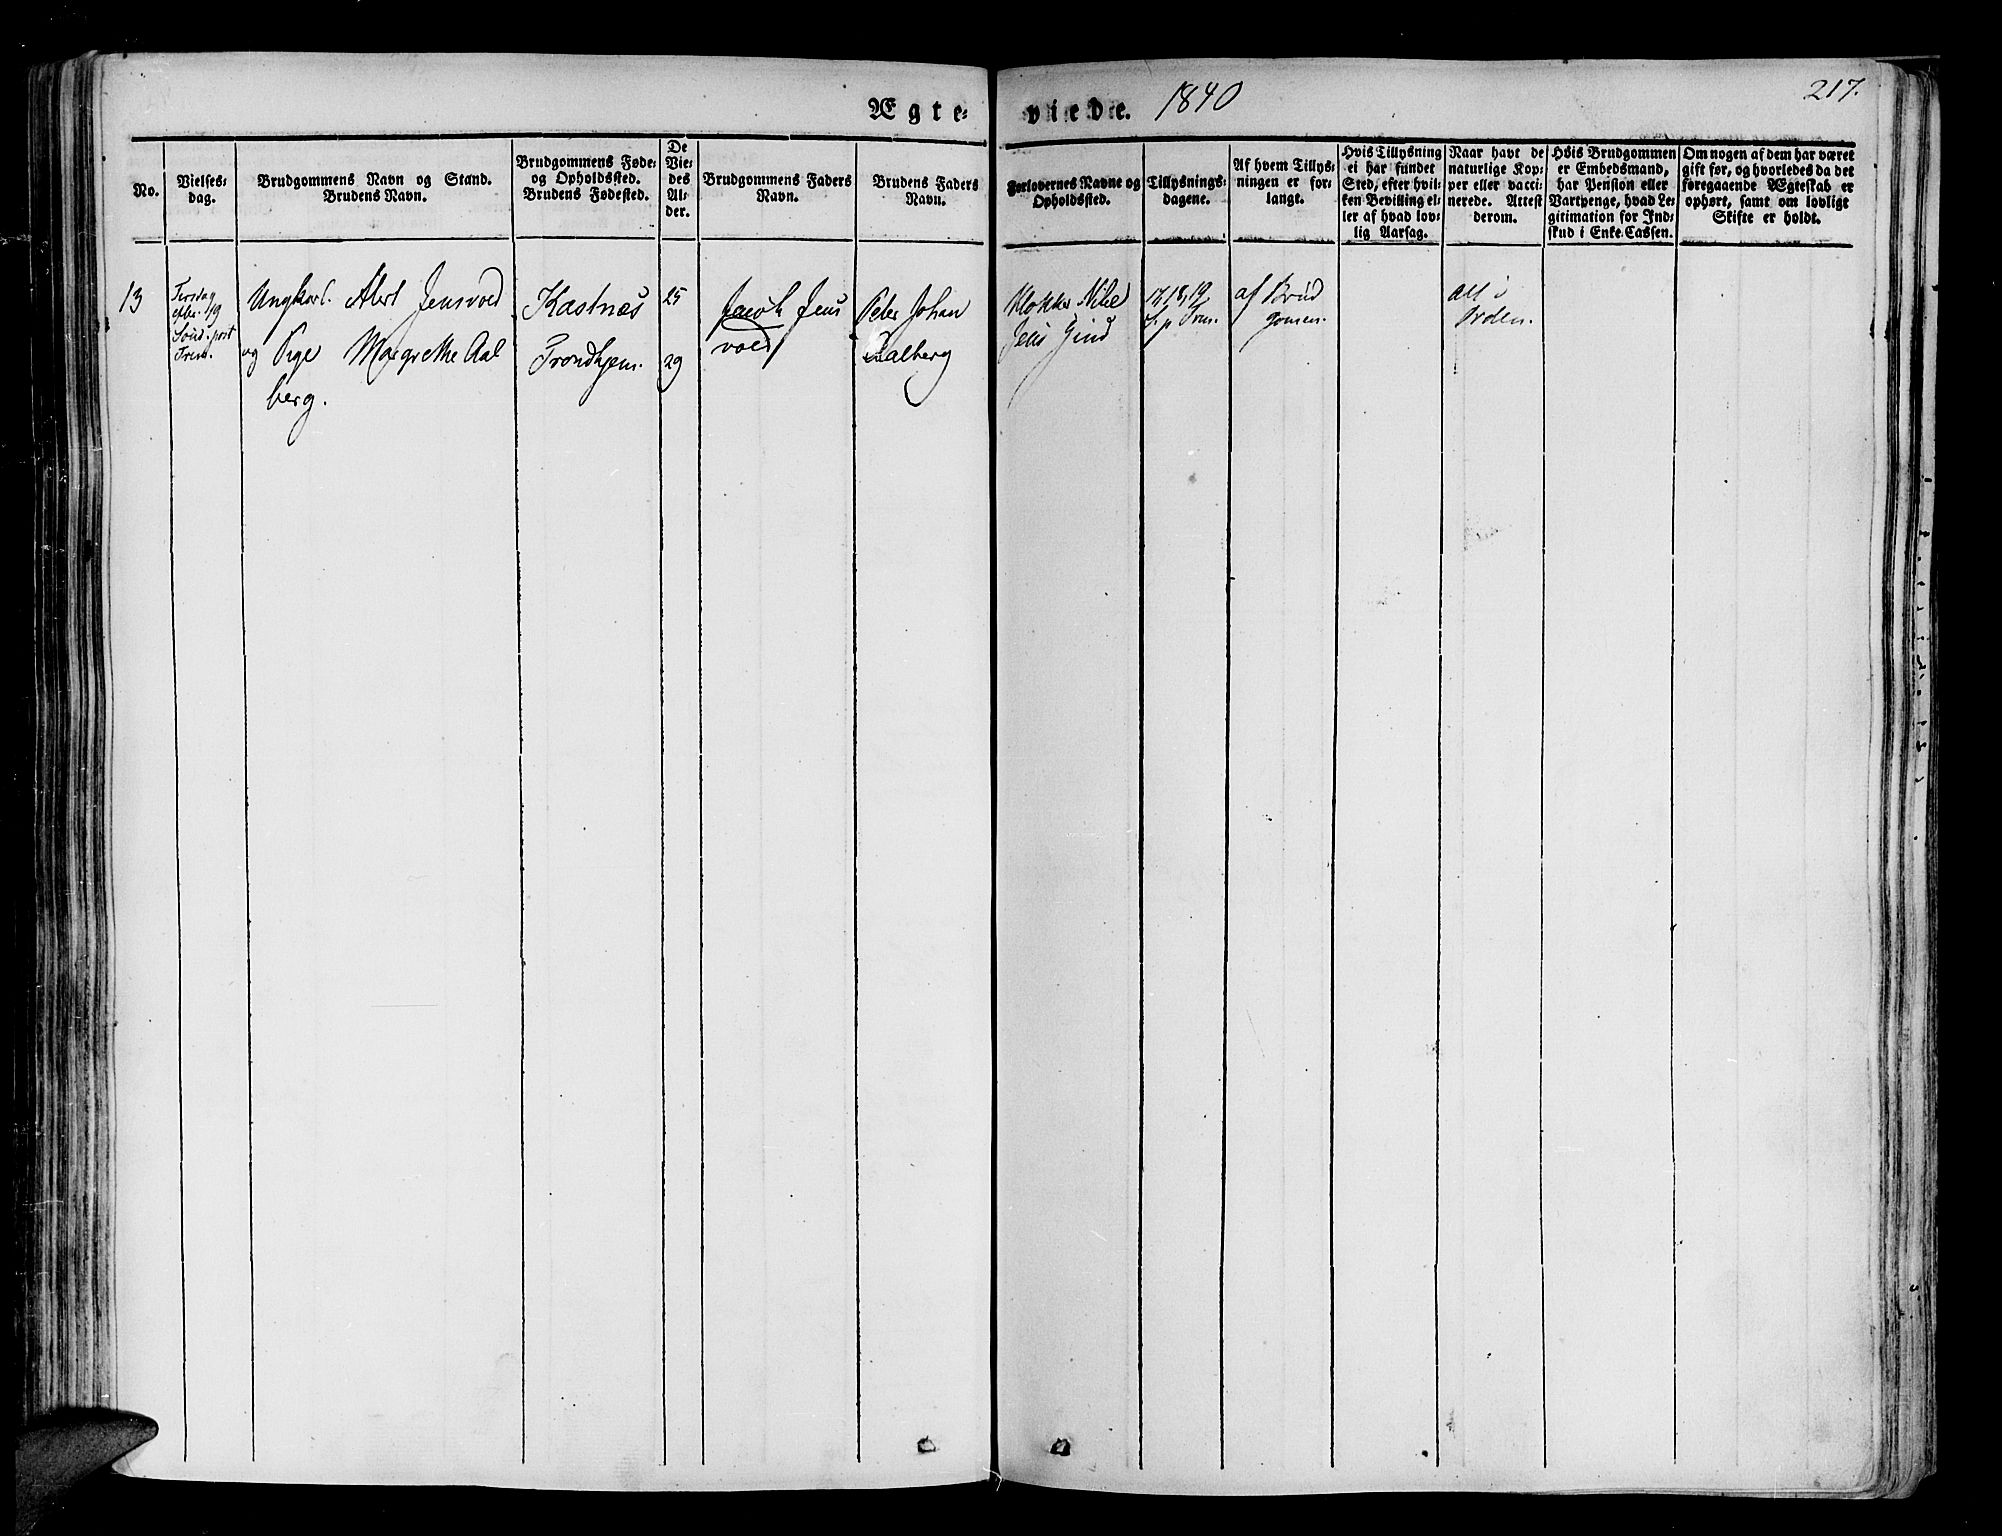 Ægte-
viede. 1840
217.
No.
Vielses-
dag.
Brudgommens Navn og Stand.
Brudens Navn.
Brudgommens Føde-
og Opholdssted.
Brudens Fødested.
De
Vie-
des
Al-
der.
Brudgommens Faders
Navn.
Brudens Faders
Navn.
Forlovernes Navne og
Opholdssted.
Tillysnings-
dagene.
Af hvem Tillys-
ningen er for-
langt.
Hvis Tillysning
ei har fundet
Sted, efter hvil-
ken Bevilling el-
ler af hvad lov-
lig Aarsag.
Naar havt de
naturlige Kop-
per eller vacci-
nerede. Attest
derom.
Hvis Brudgommen
er Embedsmand,
har Pension eller
Vartpenge, hvad Le-
gitimation for Ind-
skud i Enke-Cassen.
Om nogen af dem har været
gift før, og hvorledes da det
foregaaende Ægteskab er
ophørt, samt om lovligt
Skifte er holdt.
13
Tirsdag
efter
Sønd. post
Trin.
Ungkarl. Jensvold
og Pige Margrethe Aal
berg.
Kastnæs
Trondhjem.
25
29
Jacob Jens
vold
Peter Johan
Aalberg
Klokker
17, 18, 19
S. p. Trin.
af Brud
gomen.
Alt i
Orden.